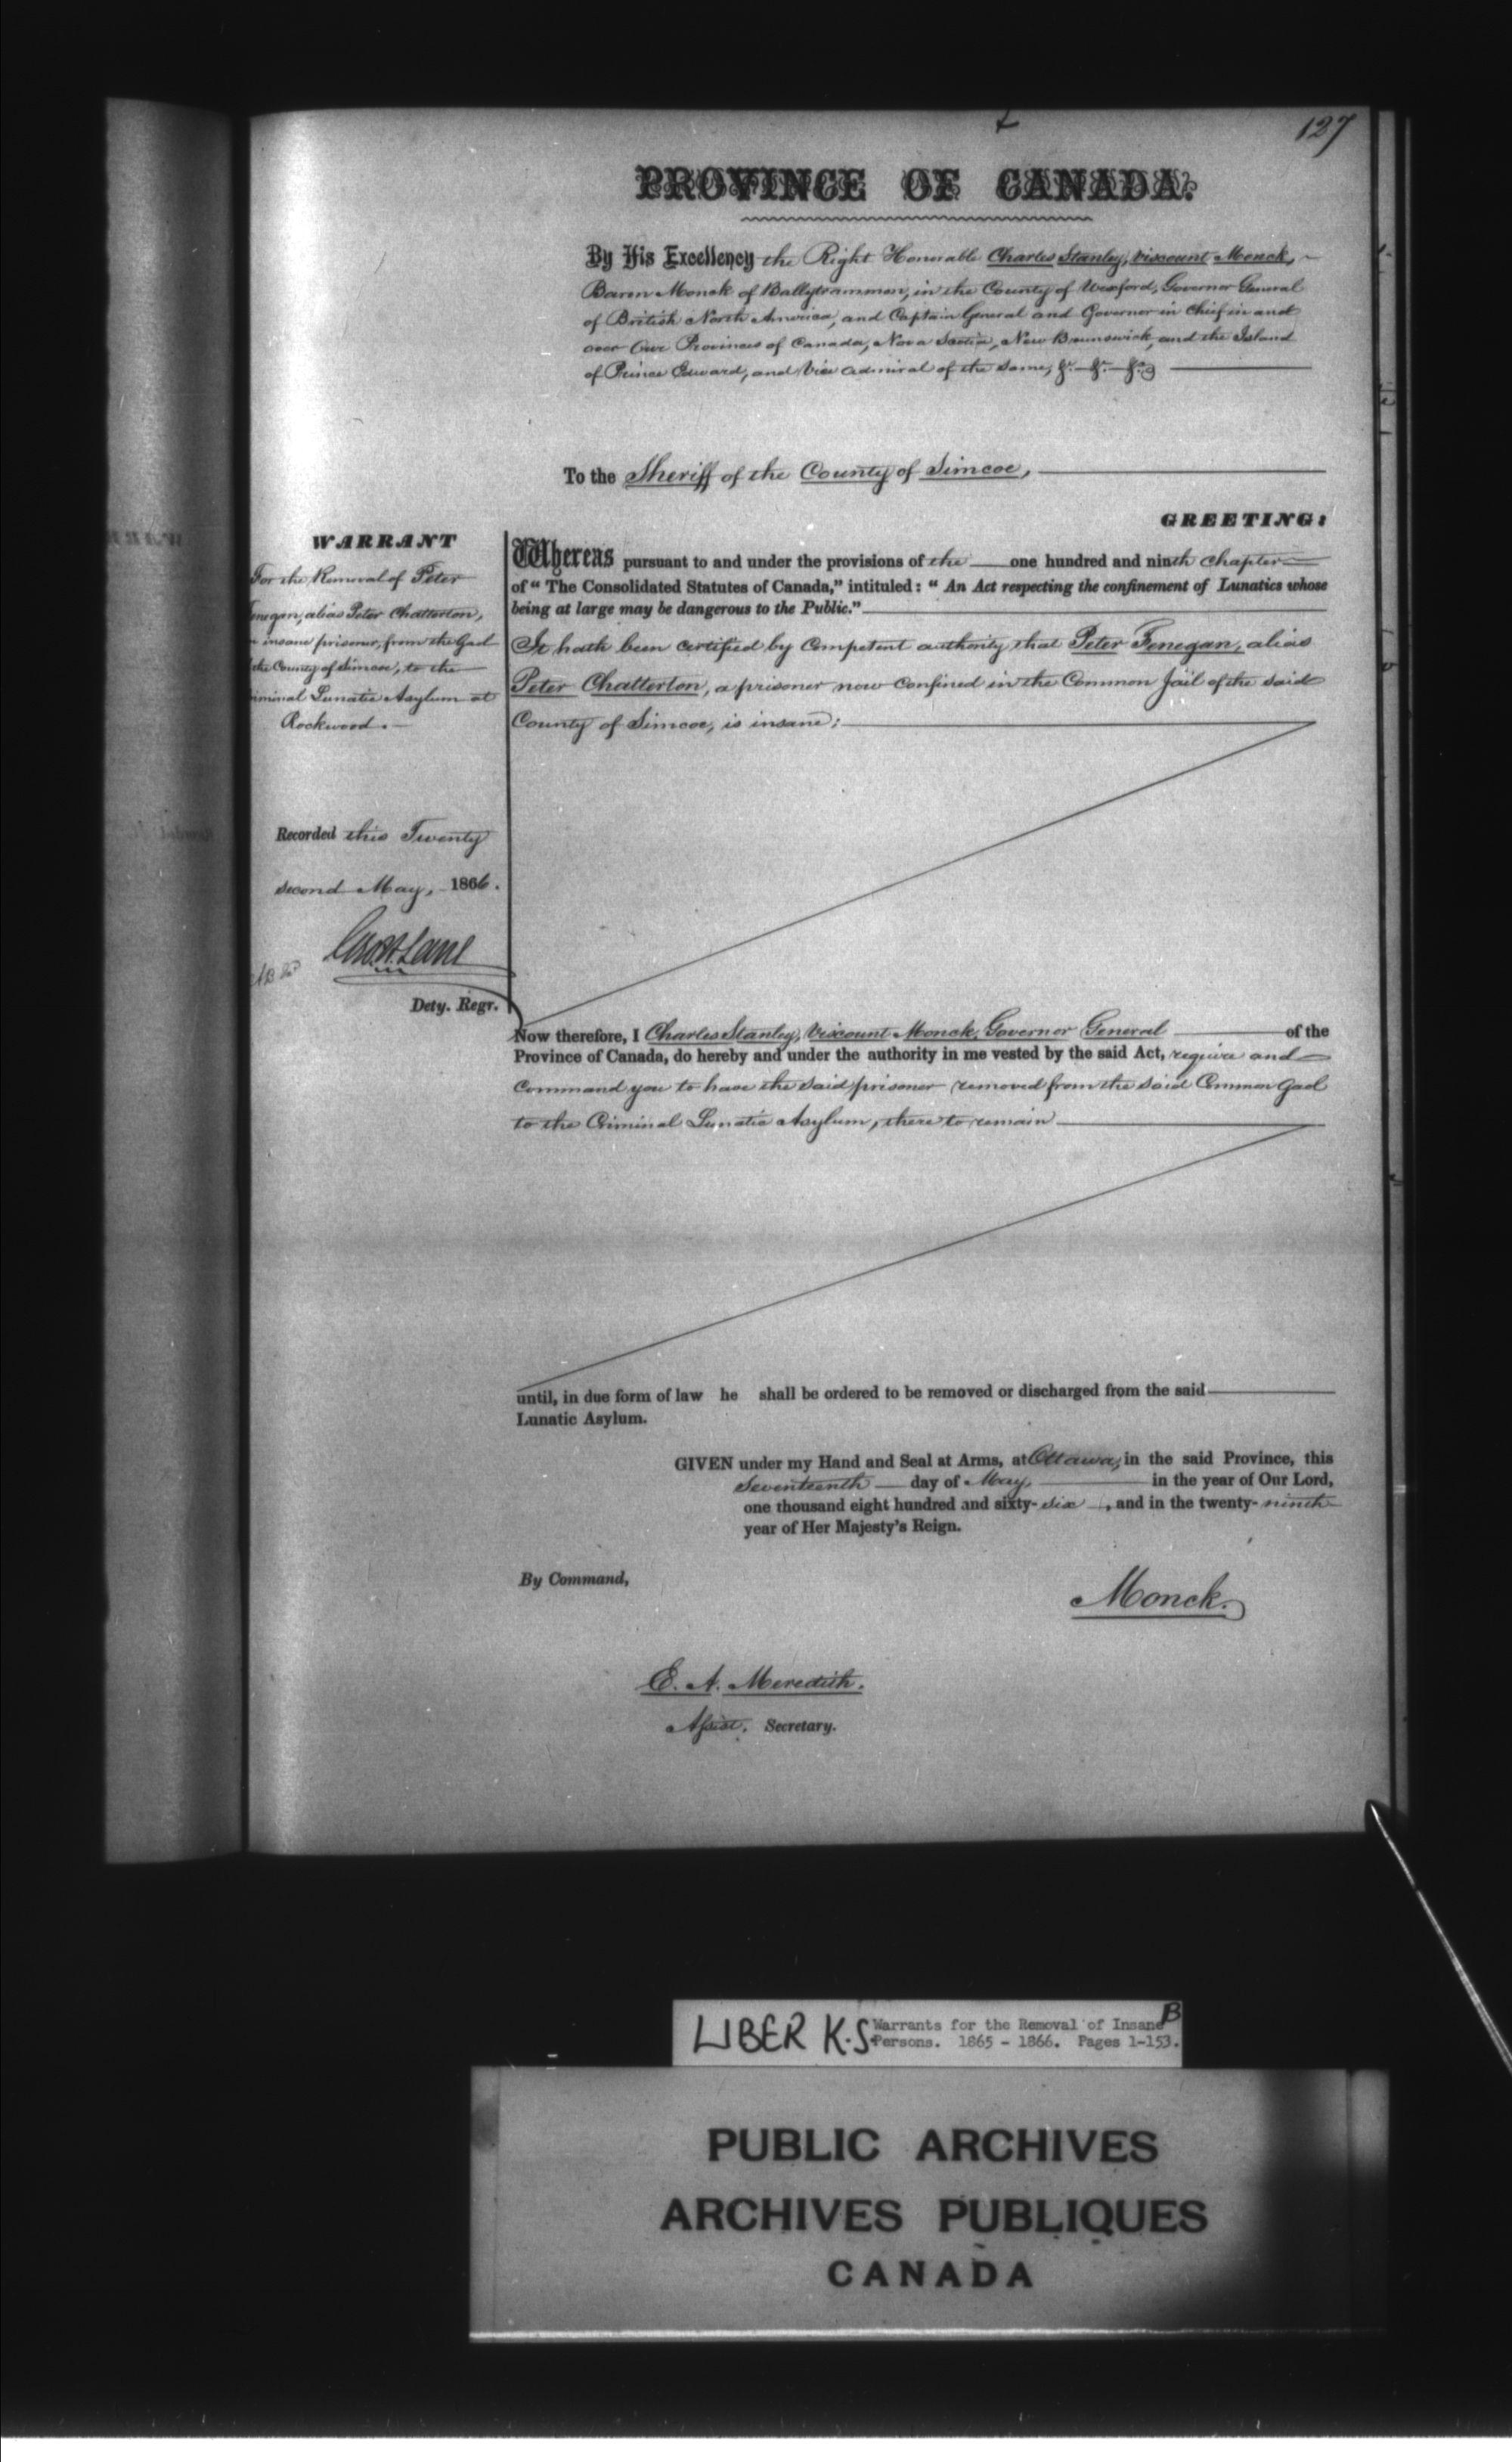 127
PROVINCE OF CANADA.
By His Excellency the Right Honorable Charles Stanley, Viscount Monck,
Baron Monck of Ballytrammon, in the County of Wexford, Governor General
of British North America, and Captain General and Governor in Chief in and
over Our Provinces of Canada, Nova Scotia, New Brunswick, and the Island
of Prince Edward, and Vice Admiral of the same, &c. &c. &c.
To the Sheriff of the County of Simcoe,
GREETING:
WARRANT
For the Removal of Peter
enegan, alias Peter Chatterton,
insane prisoner, from the Gaol
the County of Simcoe, to the
iminal Lunatic Asylum at
Rockwood.
Recorded this Twenty
second May, 1866.
Geo. H. Lane
Dety. Regr.
Whereas pursuant to and under the provisions of the one hundred and ninth chapter
of "The Consolidated Statutes of Canada," intituled: "An Act respecting the confinement of Lunatics whose
being at large may be dangerous to the Public."
It hath been certified by Competent authority that Peter Fenegan, alias
Peter Chatterton, a prisoner now confined in the Common Jail of the said
County of Simcoe, is insane:
Now therefore, I Charles Stanley, Viscount Monck, Governor General of the
Province of Canada, do hereby and under the authority in me vested by the said Act, require and
Command you to have the said prisoner removed from the said Common Gaol
to the Criminal Lunatic Asylum, there to remain
until, in due form of law he shall be ordered to be removed or discharged from the said
Lunatic Asylum.
GIVEN under my Hand and Seal at Arms, at Ottawa, in the said Province, this
Seventeenth day of May, in the year of Our Lord,
one thousand eight hundred and sixty-six, and in the twenty-ninth
year of Her Majesty's Reign.
By Command,
Monck.
E. A. Meredith.
Assist. Secretary.
LIBER K.S. Warrants for the Removal of Insane B
Persons. 1865 - 1866. Pages 1-153.
PUBLIC ARCHIVES
ARCHIVES PUBLIQUES
CANADA